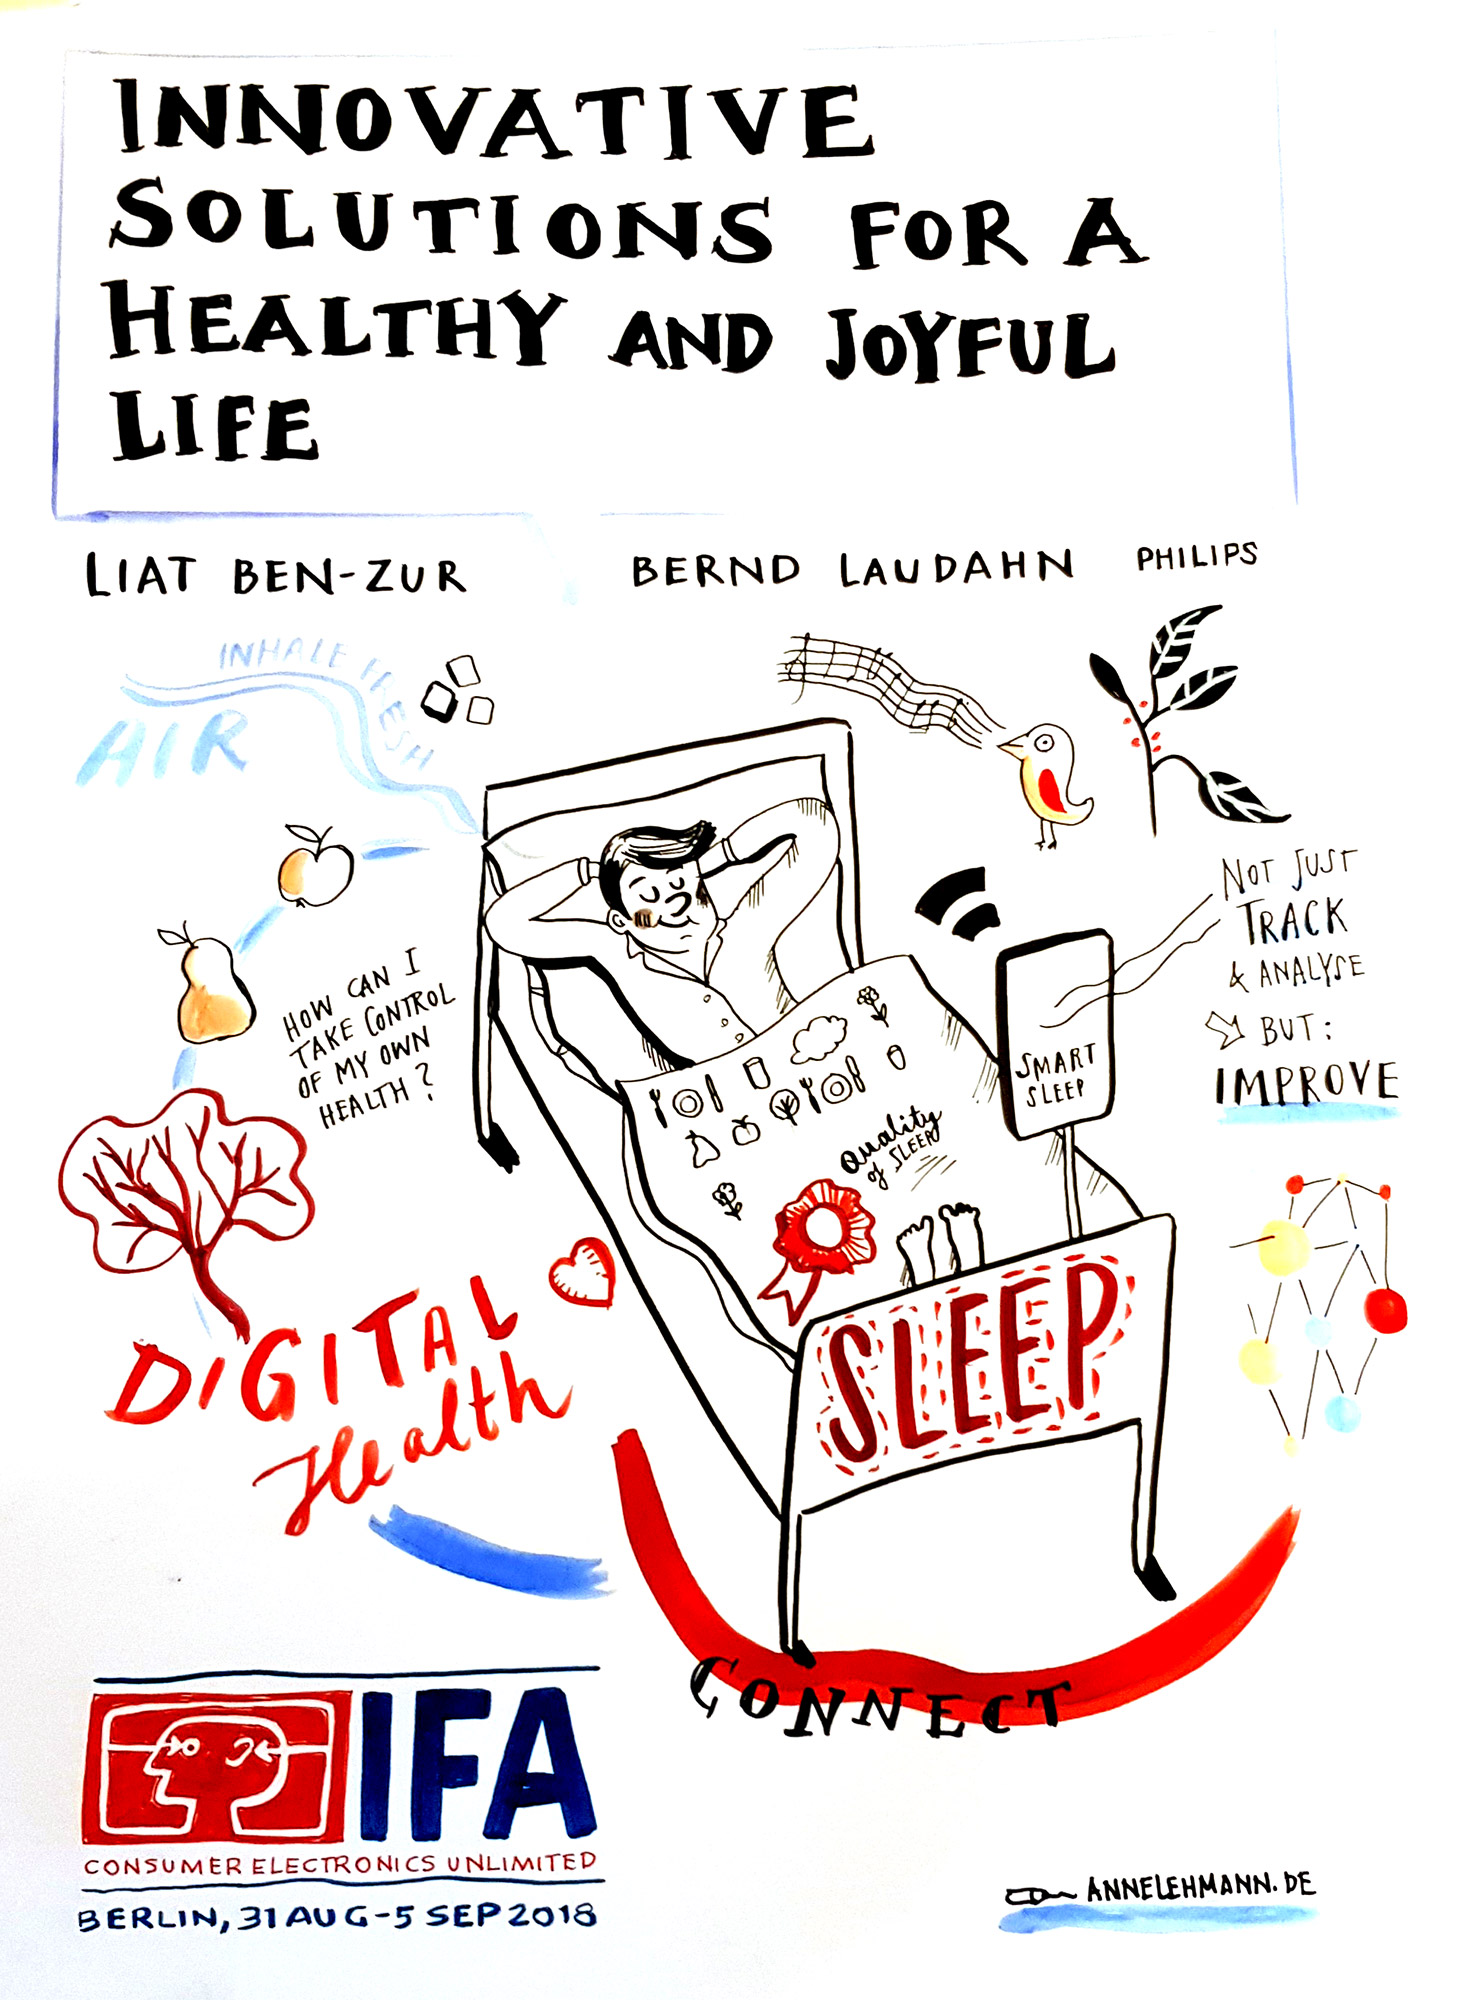 INNOVATIVE
SOLUTIONS FOR A
HEALTHY AND JOYFUL
LIFE
LIAT BEN-ZUR
BERND LAUDAHN PHILIPS
INHALE FRESH
AIR
HOW CAN I
TAKE CONTROL
OF MY OWN
HEALTH?
NOT JUST
TRACK
& ANALYSE
BUT:
IMPROVE
SMART
SLEEP
Quality
of SLEEP
SLEEP
DIGITAL
Health
CONNECT
IFA
CONSUMER ELECTRONICS UNLIMITED
BERLIN, 31 AUG-5 SEP 2018
ANNELEHMANN.DE